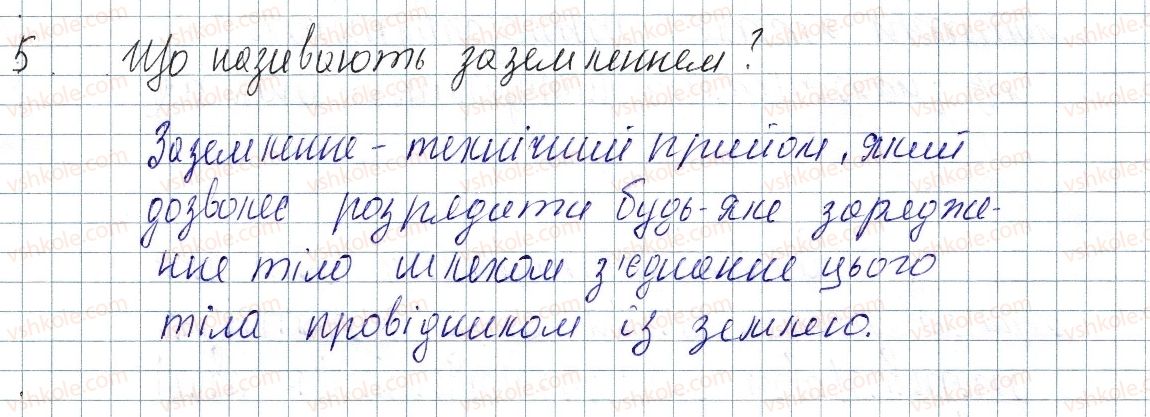 5. Що називають заземленням?
Заземлення - технічний прийом, який
дозволяє розрядити будь-яке зарядже-
нне тіло шляхом з'єднання цього
тіла провідником із землею.